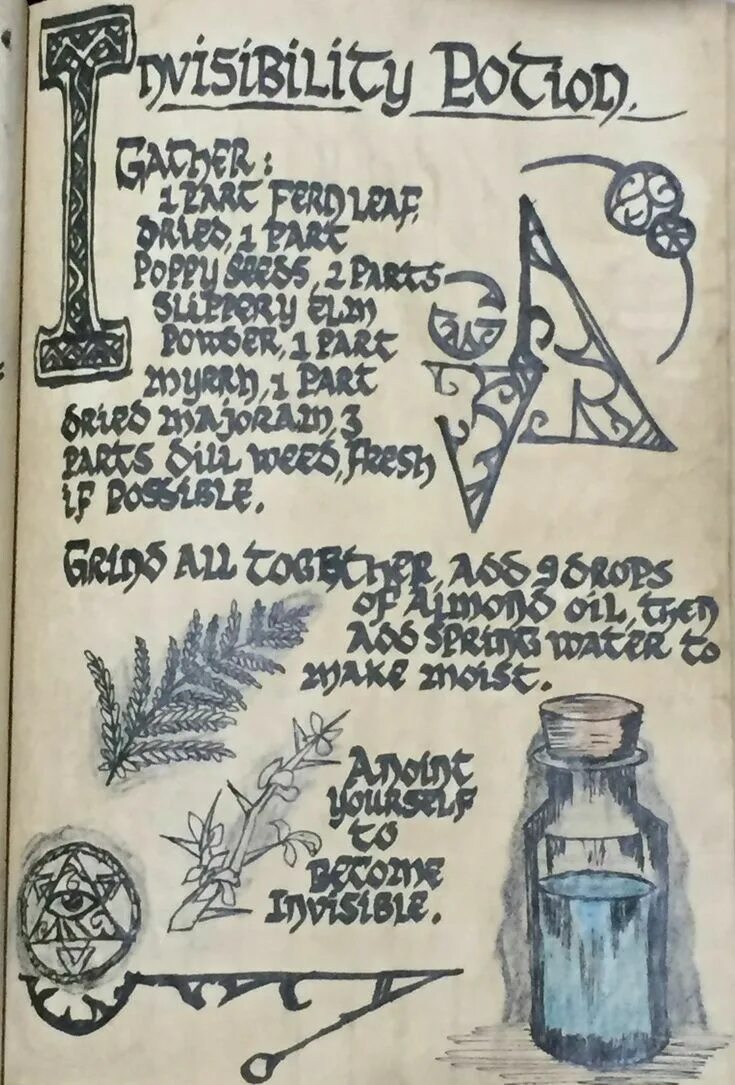 Invisibility Potion.
Gather:
1 Part Fern leaf,
dried, 1 Part
Poppy seeds, 2 Parts
Slippery elm
Powder, 1 Part
myrrh, 1 Part
dried majoram, 3
Parts dill weed, fresh
if Possible.
Grind all together, add 9 drops
of Almond oil, then
add spring water to
make moist.
Anoint
yourself
to
Become
Invisible.